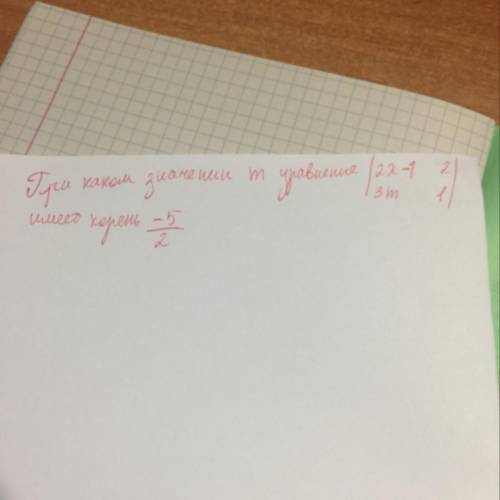 При каком значении m уравнение |2x-1 2|
3m 1
имеет корень -5/2